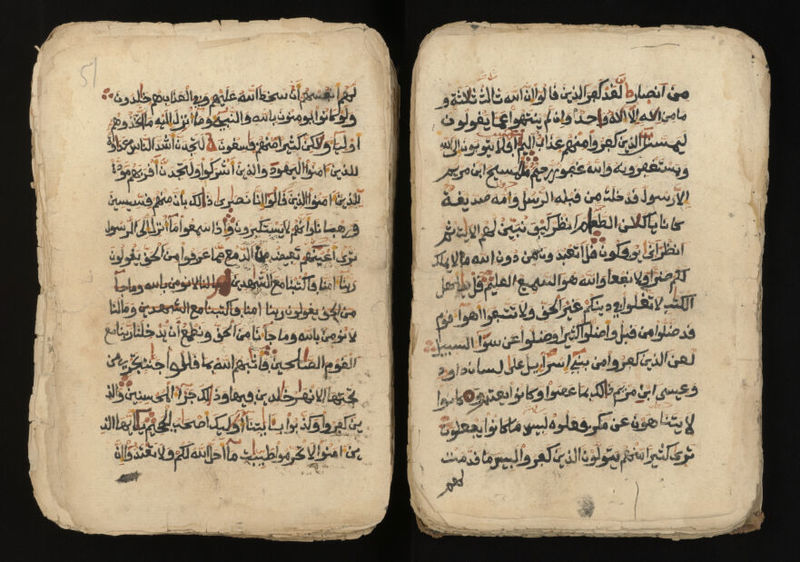 من انصار لقد كفر الذين قالوا ان الله ثالث ثلاثة و
ما من اله الا اله واحد وان لم ينتهوا عما يقولون
ليمسن الذين كفروا منهم عذاب اليم افلا يتوبون الى الله
ويستغفرونه والله غفور رحيم ما المسيح ابن مريم
الا رسول قد خلت من قبله الرسل وامه صديقة
كانا ياكلان الطعام انظر كيف نبين لهم الايت ثم
انظر انى يوفكون قل اتعبدون من دون الله ما لا يملك
لكم ضرا ولا نفعا والله هو السميع العليم قل ياهل
الكتب لا تغلوا في دينكم غير الحق ولا تتبعوا اهوا قوم
قد ضلوا من قبل واضلوا كثيرا وضلوا عن سوا السبيل
لعن الذين كفروا من بني اسرايل على لسان داود
وعيسى ابن مريم ذلك بما عصوا وكانوا يعتدون كانوا
لا يتناهون عن منكر فعلوه لبيس ما كانوا يفعلون
ترى كثيرا منهم يتولون الذين كفروا لبيس ما قدمت
لهم
51
لهم انفسهم ان سخط الله عليهم وفي العذاب هم خالدون
ولو كانوا يومنون بالله والنبي وما انزل اليه ما اتخذوهم
اوليا ولاكن كثيرا منهم فاسقون لتجدن اشد الناس عداوة
للذين امنوا اليهود والذين اشركوا ولتجدن اقربهم مودة
للذين امنوا الذين قالوا انا نصرى ذالك بان منهم قسيسين
ورهبانا وانهم لا يستكبرون واذا سمعوا ما انزل الى الرسول
ترى اعينهم تفيض من الدمع مما عرفوا من الحق يقولون
ربنا امنا فاكتبنا مع الشهدين وما لنا لا نومن بالله وما جانا
من الحق يقولون ربنا امنا فاكتبنا مع الشهدين وما لنا
لا نومن بالله وما جانا من الحق ونطمع ان يدخلنا ربنا مع
القوم الصلحين فاثبهم الله بما قالوا جنت تجري من
تحتها الانهر خالدين فيها وذلك جزا المحسنين والذ
ين كفروا وكذبوا بايتنا اوليك اصحب الجحيم يايها الذ
ين امنوا لا تحرموا طيبت ما احل الله لكم ولا تعتدوا ان